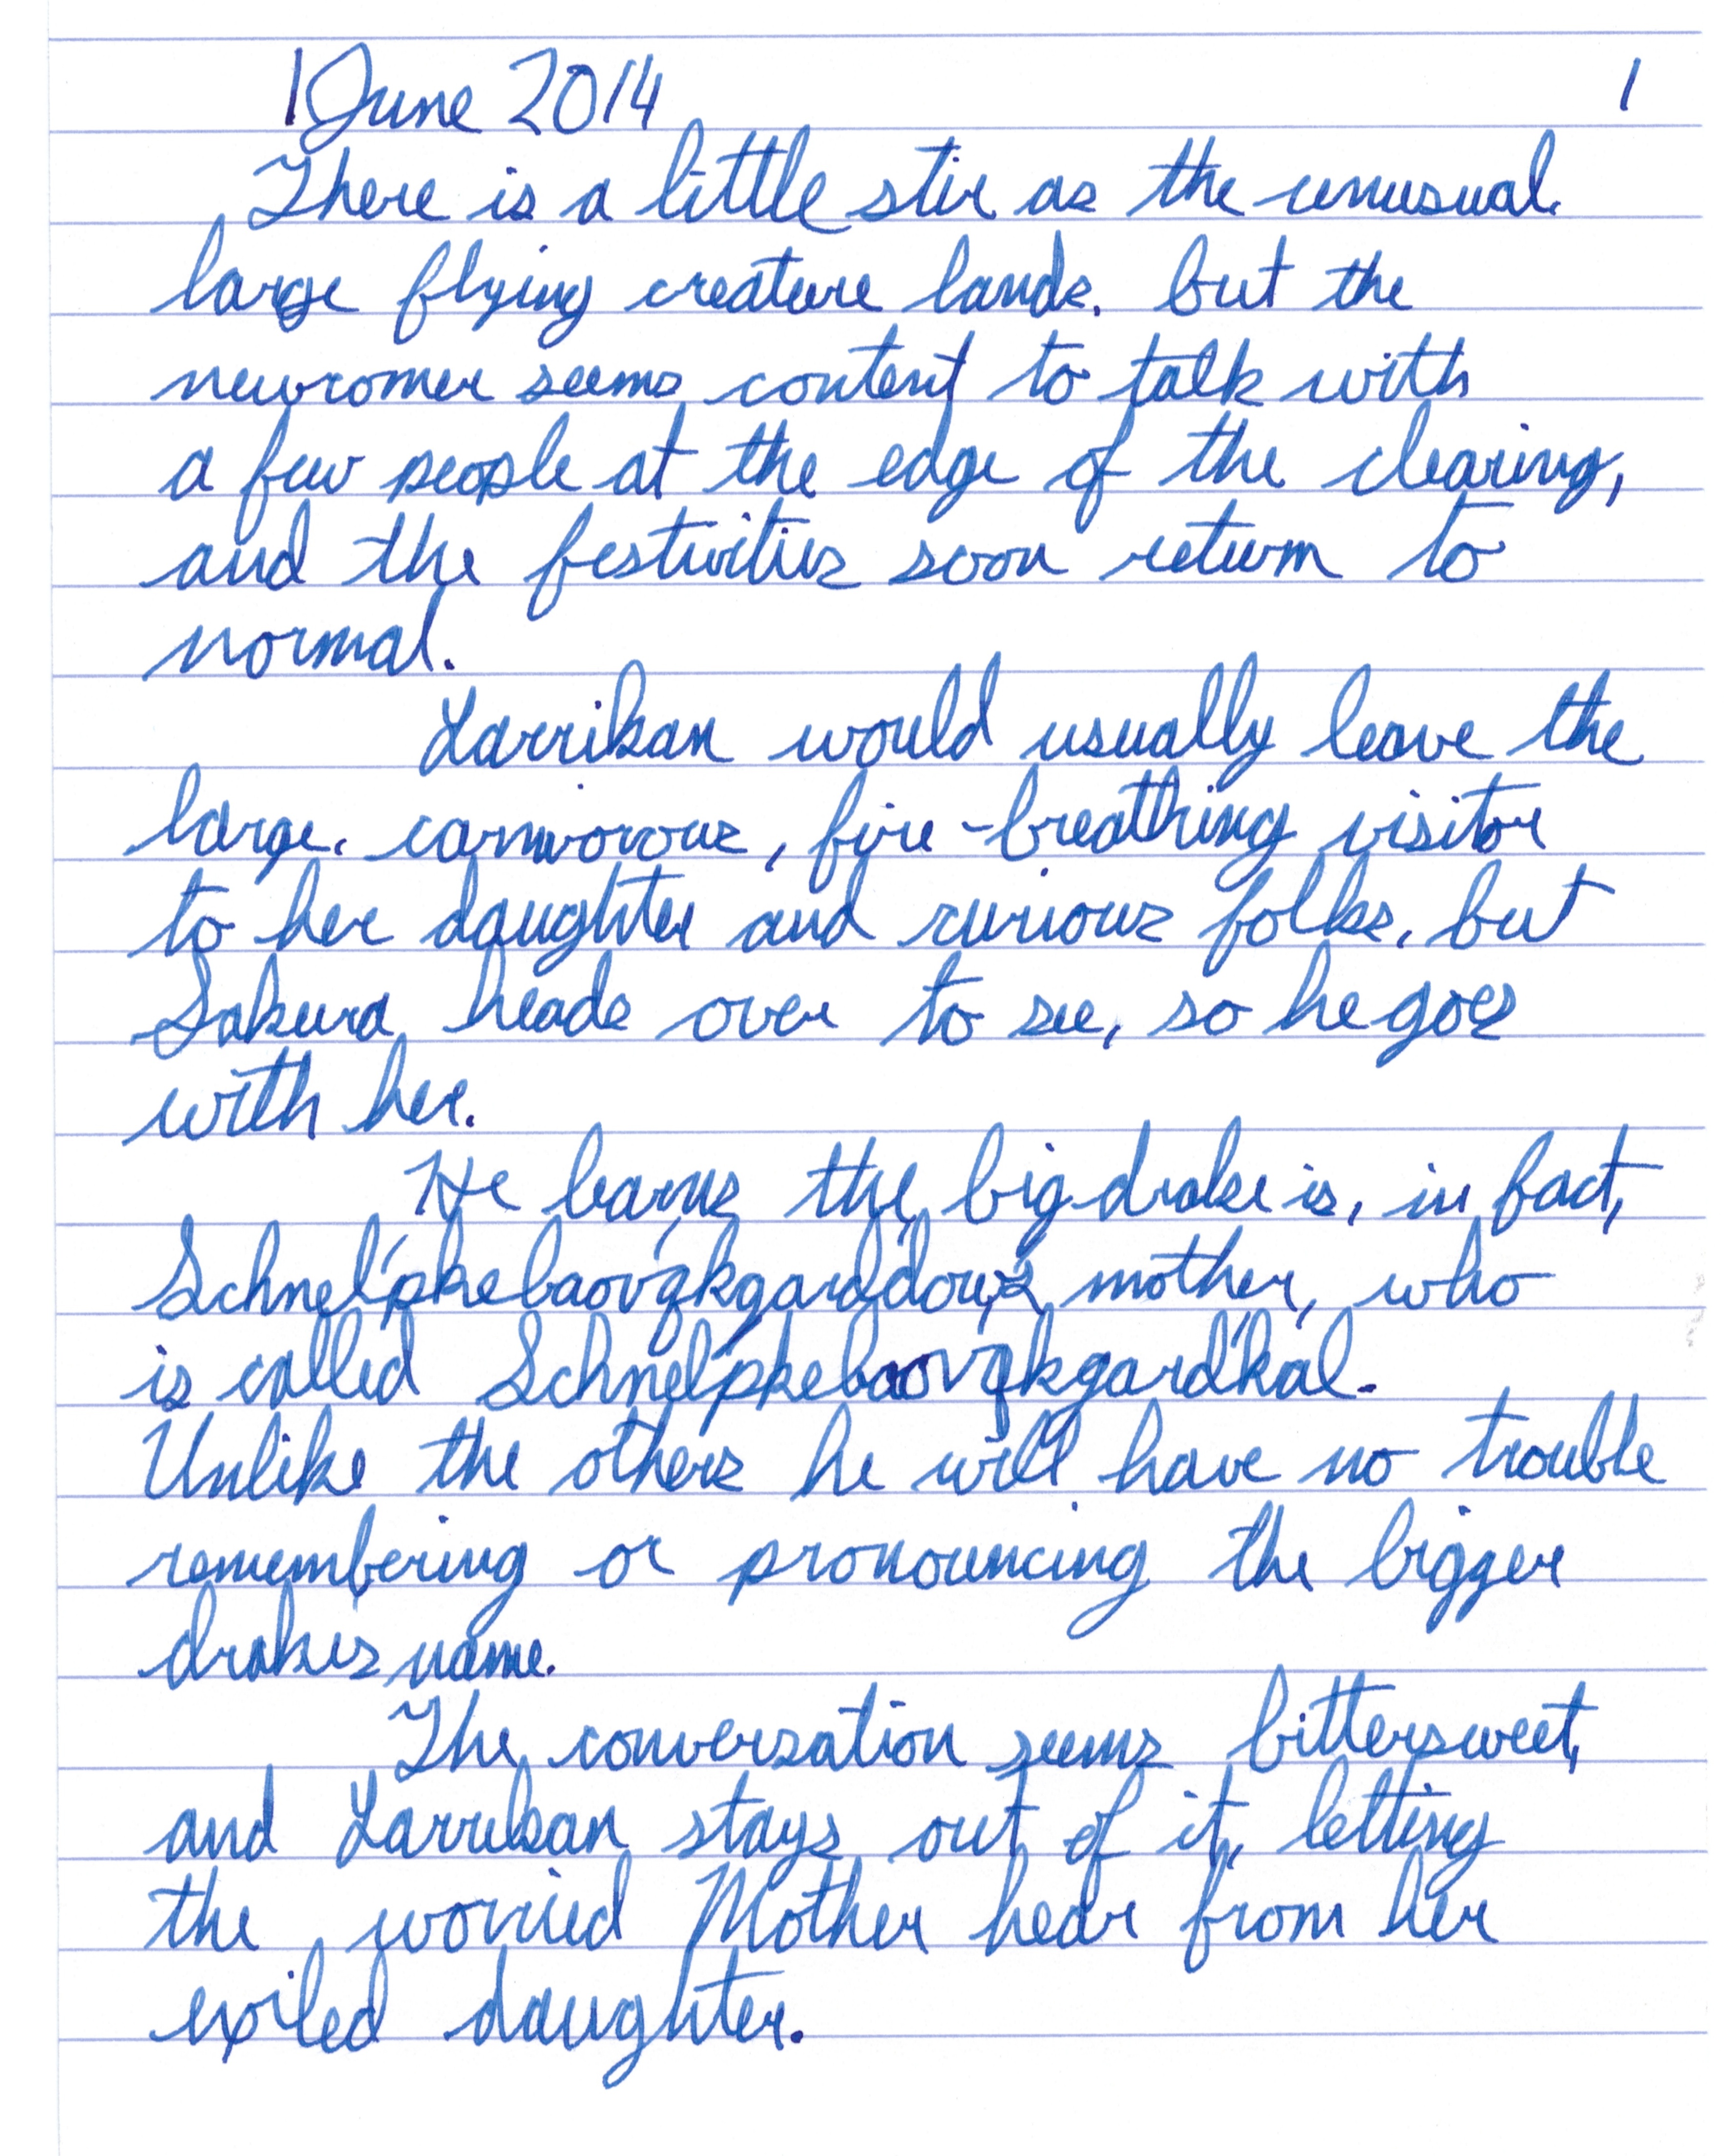 1 June 2014 1
There is a little stir as the unusual
large flying creature lands, but the
newcomer seems content to talk with
a few people at the edge of the clearing,
and the festivities soon return to
normal.
Larrikan would usually leave the
large, carnivorous, fire-breathing visitor
to her daughter and curious folks, but
Sakura heads over to see, so he goes
with her.
He learns the big drake is, in fact,
mother, who
is called Schnel'pkebaovqkgard'kal.
Unlike the others he will have no trouble
remembering or pronouncing the bigger
drake's name.
The conversation seems bittersweet,
and Larrikan stays out of it, letting
the worried Mother hear from her
exiled daughter.